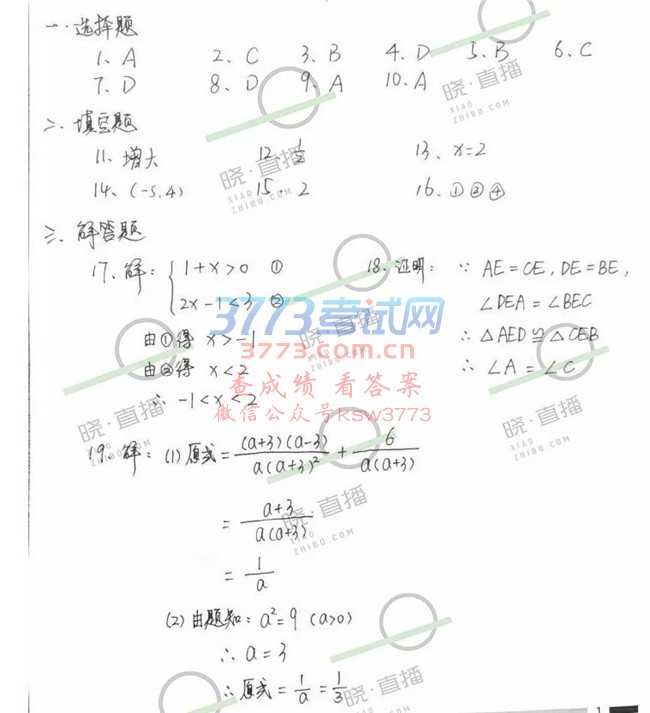 一、选择题
1、A 2、C 3、B 4、D 5、B 6、C
7、D 8、D 9、A 10、A
二、填空题
11、增大 12、1/2 13、x=2
14、(-5,4) 15、2 16、①③④
三、解答题
17、解: { 1+x>0 ① 18、证明: ∵ AE=CE, DE=BE,
2x-1<3 ② ∠DEA=∠BEC
由①得 x>-1 ∴ △AED≌△CEB
由②得 x<2 ∴ ∠A=∠C
∴ -1<x<2
19、解: (1) 原式= (a+3)(a-3)/a(a+3)² + 6/a(a+3)
= a+3/a(a+3)
= 1/a
(2) 由题知: a²=9 (a>0)
∴ a=3
∴ 原式= 1/a = 1/3
3773考试网
3773.com.cn
查成绩 看答案
微信公众号ksw3773
晓·直播
XIAO
ZHIBO.COM
1